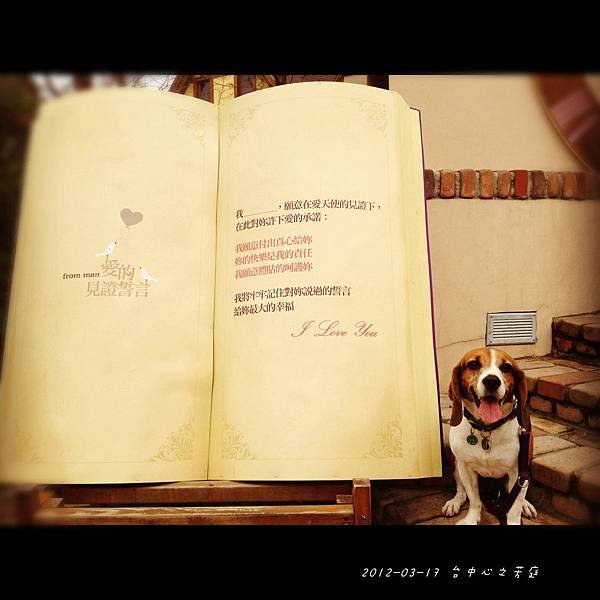 from man 愛的
見證誓言
我______，願意在愛天使的見證下，
在此對妳許下愛的承諾：
我願意付出真心給妳
妳的快樂是我的責任
我願意體貼的呵護妳
我將牢牢記住對妳說過的誓言
給妳最大的幸福
I Love You
2012-03-17 台中心之芳庭